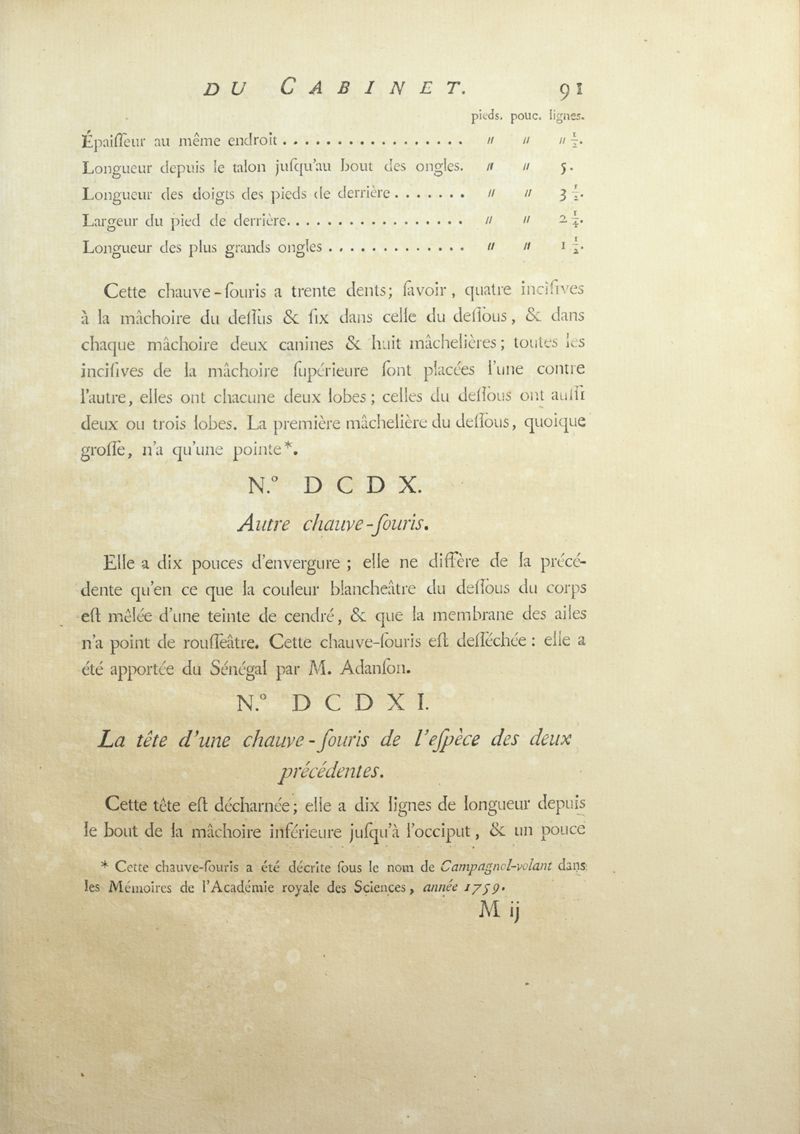 DU CABINET. 91
pieds. pouc. lignes.
Épaiſſeur au même endroit . . . . . . . . . . . . . . . . . " " " 1/2.
Longueur depuis le talon juſqu'au bout des ongles. " " 5.
Longueur des doigts des pieds de derrière . . . . . . . " " 3 1/2.
Largeur du pied de derrière. . . . . . . . . . . . . . . . . " " 2 1/4.
Longueur des plus grands ongles . . . . . . . . . . . . . " " 1 1/2.
Cette chauve-ſouris a trente dents; ſavoir, quatre inciſives
à la mâchoire du deſſus & ſix dans celle du deſſous, & dans
chaque mâchoire deux canines & huit mâchelières; toutes les
inciſives de la mâchoire ſupérieure ſont placées l'une contre
l'autre, elles ont chacune deux lobes; celles du deſſous ont auſſi
deux ou trois lobes. La première mâchelière du deſſous, quoique
groſſe, n'a qu'une pointe*.
N.° DCDX.
Autre chauve-ſouris.
Elle a dix pouces d'envergure ; elle ne diffère de la précé-
dente qu'en ce que la couleur blancheâtre du deſſous du corps
eſt mêlée d'une teinte de cendré, & que la membrane des ailes
n'a point de rouſſeâtre. Cette chauve-ſouris eſt deſſéchée : elle a
été apportée du Sénégal par M. Adanſon.
N.° DCDXI.
La tête d'une chauve-ſouris de l'eſpèce des deux
précédentes.
Cette tête eſt décharnée; elle a dix lignes de longueur depuis
le bout de la mâchoire inférieure juſqu'à l'occiput, & un pouce
* Cette chauve-ſouris a été décrite ſous le nom de Campagnol-volant dans
les Mémoires de l'Académie royale des Sciences, année 1759.
M ij